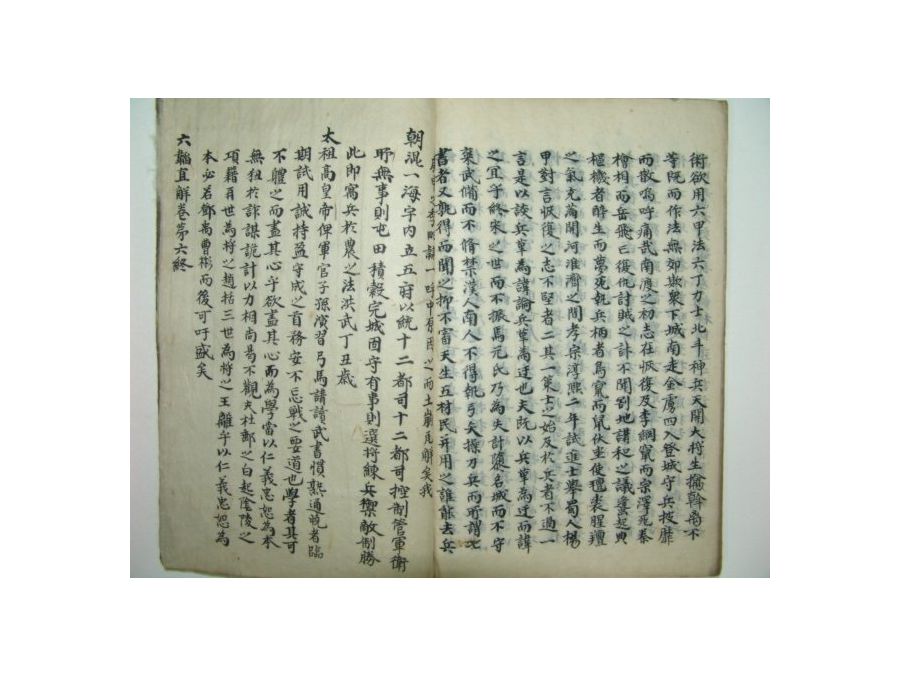 術欲用六甲法六丁力士北斗神兵天開大將生擒斡离不
等既而作法無効敗衆下城南走金虜四入登城守兵披靡
而散嗚呼痛哉南渡之初志在恢復及李綱竄而宗澤死秦
檜相而岳飛亡復仇討賊之計不聞割地講和之議蜂起與
樞機者醉生而夢死執兵柄者鳥竄而鼠伏坐使氊裘腥羶
之氣充滿開河淮濟之間孝宗淳熙二年試進士舉蜀人楊
甲對言恢復之志不堅者二其一策士之始及於兵者不過一
言是以談兵革為諱論兵革為迂也夫既以兵革為迂而諱
之宜乎終宋之世而不振馬元氏乃為失計隳名城而不守
棄武備而不脩禁漢人南人不得執弓矢操刀兵而所謂七
書者又孰得而聞之抑不富天生五材民并用之誰能去兵
一呼中原民之而土崩瓦解矣我
朝混一海宇內立五府以統十二都司十二都司控制管軍衛
所無事則屯田積穀完城固守有事則選將練兵禦敵制勝
此即寓兵於農之法洪武丁丑歲
太祖高皇帝俾軍官子孫演習弓馬講讀武書慣熟通曉者臨
期試用誠持盈守成之首務安不忘戰之要道也學者其可
不體之而盡其心乎欲盡其心而為學當以仁義忠恕為本
無狃於詐謀詭計以力相尚曷不觀夫杜郵之白起陰陵之
項籍再世為將之趙括三世為將之王離乎以仁義忠恕為
本必若鄧禹曹彬而後可吁盛矣
六韜直解卷第六終